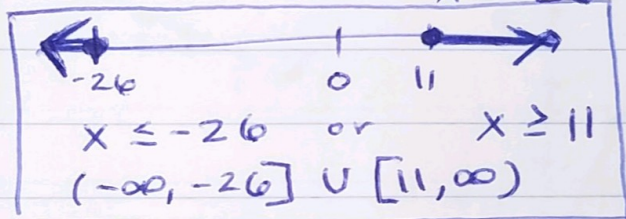 -26 0 11
x ≤ -26 or x ≥ 11
(-∞, -26] ∪ [11, ∞)